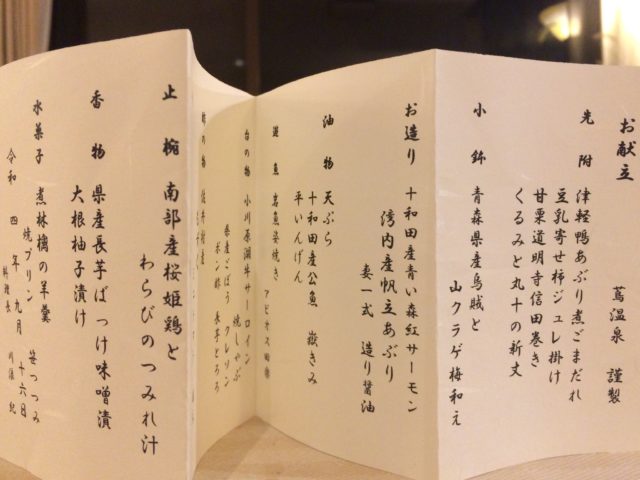 お献立
蔦温泉 謹製
先附 津軽鴨あぶり煮ごまだれ
豆乳寄せ柿ジュレ掛け
甘栗道明寺信田巻き
くるみと丸十の新丈
小鉢 青森県産烏賊と
山クラゲ梅和え
お造り 十和田産青い森紅サーモン
湾内産帆立あぶり
妻一式 造り醤油
油物 天ぷら
十和田産公魚 嶽きみ
平いんげん
岩魚姿焼き
台の物 小川原湖牛サーロイン
焼しゃぶ
県産ごぼう クレソン
ポン酢 長芋とろろ
止椀 南部産桜姫鶏と
わらびのつみれ汁
香物 県産長芋ばっけ味噌漬
大根柚子漬け
水菓子 煮林檎の羊羹
焼プリン 笹つつみ
令和四年九月十六日
料理長